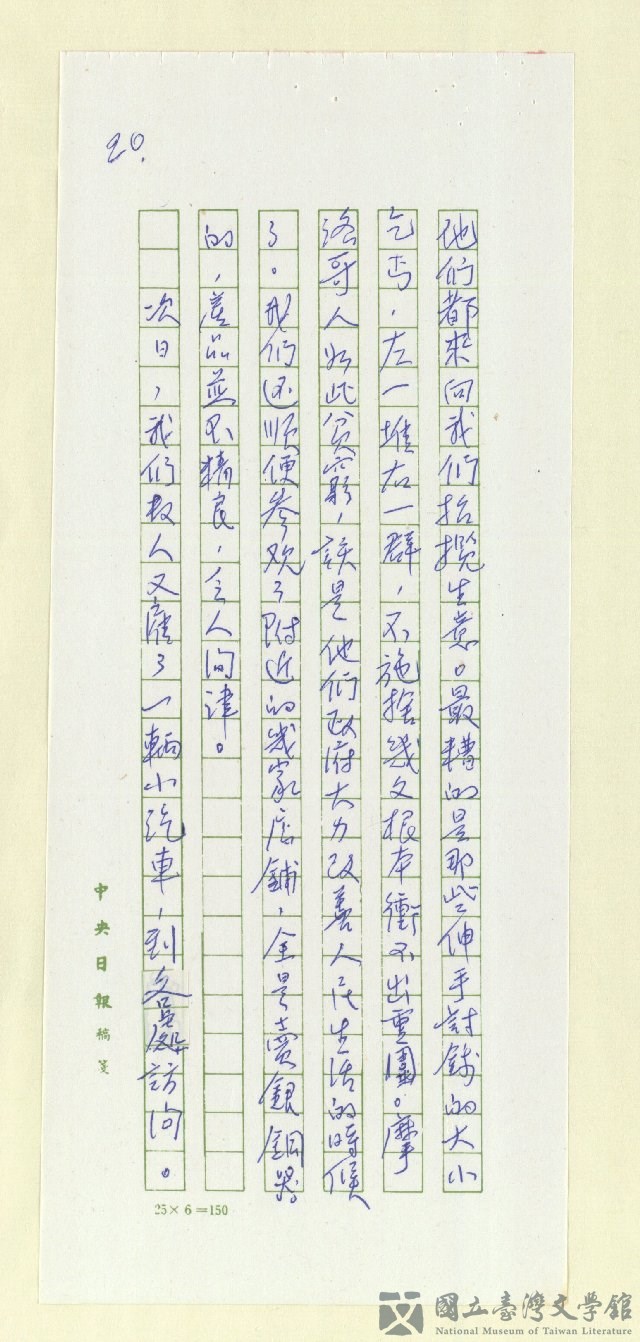 20.
他们都来向我们招攬生意。最糟的是那些伸手討錢的大小
乞丐，左一堆右一群，不施捨幾文根本衝不出重圍。摩
洛哥人如此貧窮，該是他們政府大力改善人民生活的時候
了。我们还順便参观了附近的幾家店鋪，全是賣銀銅器
的，產品並不精良，令人问津。
次日，我们救人又雇了一輛小汽車，到各處訪问。
中央日報稿箋
25×6=150
國立臺灣文學館
National Museum of Taiwan Literature